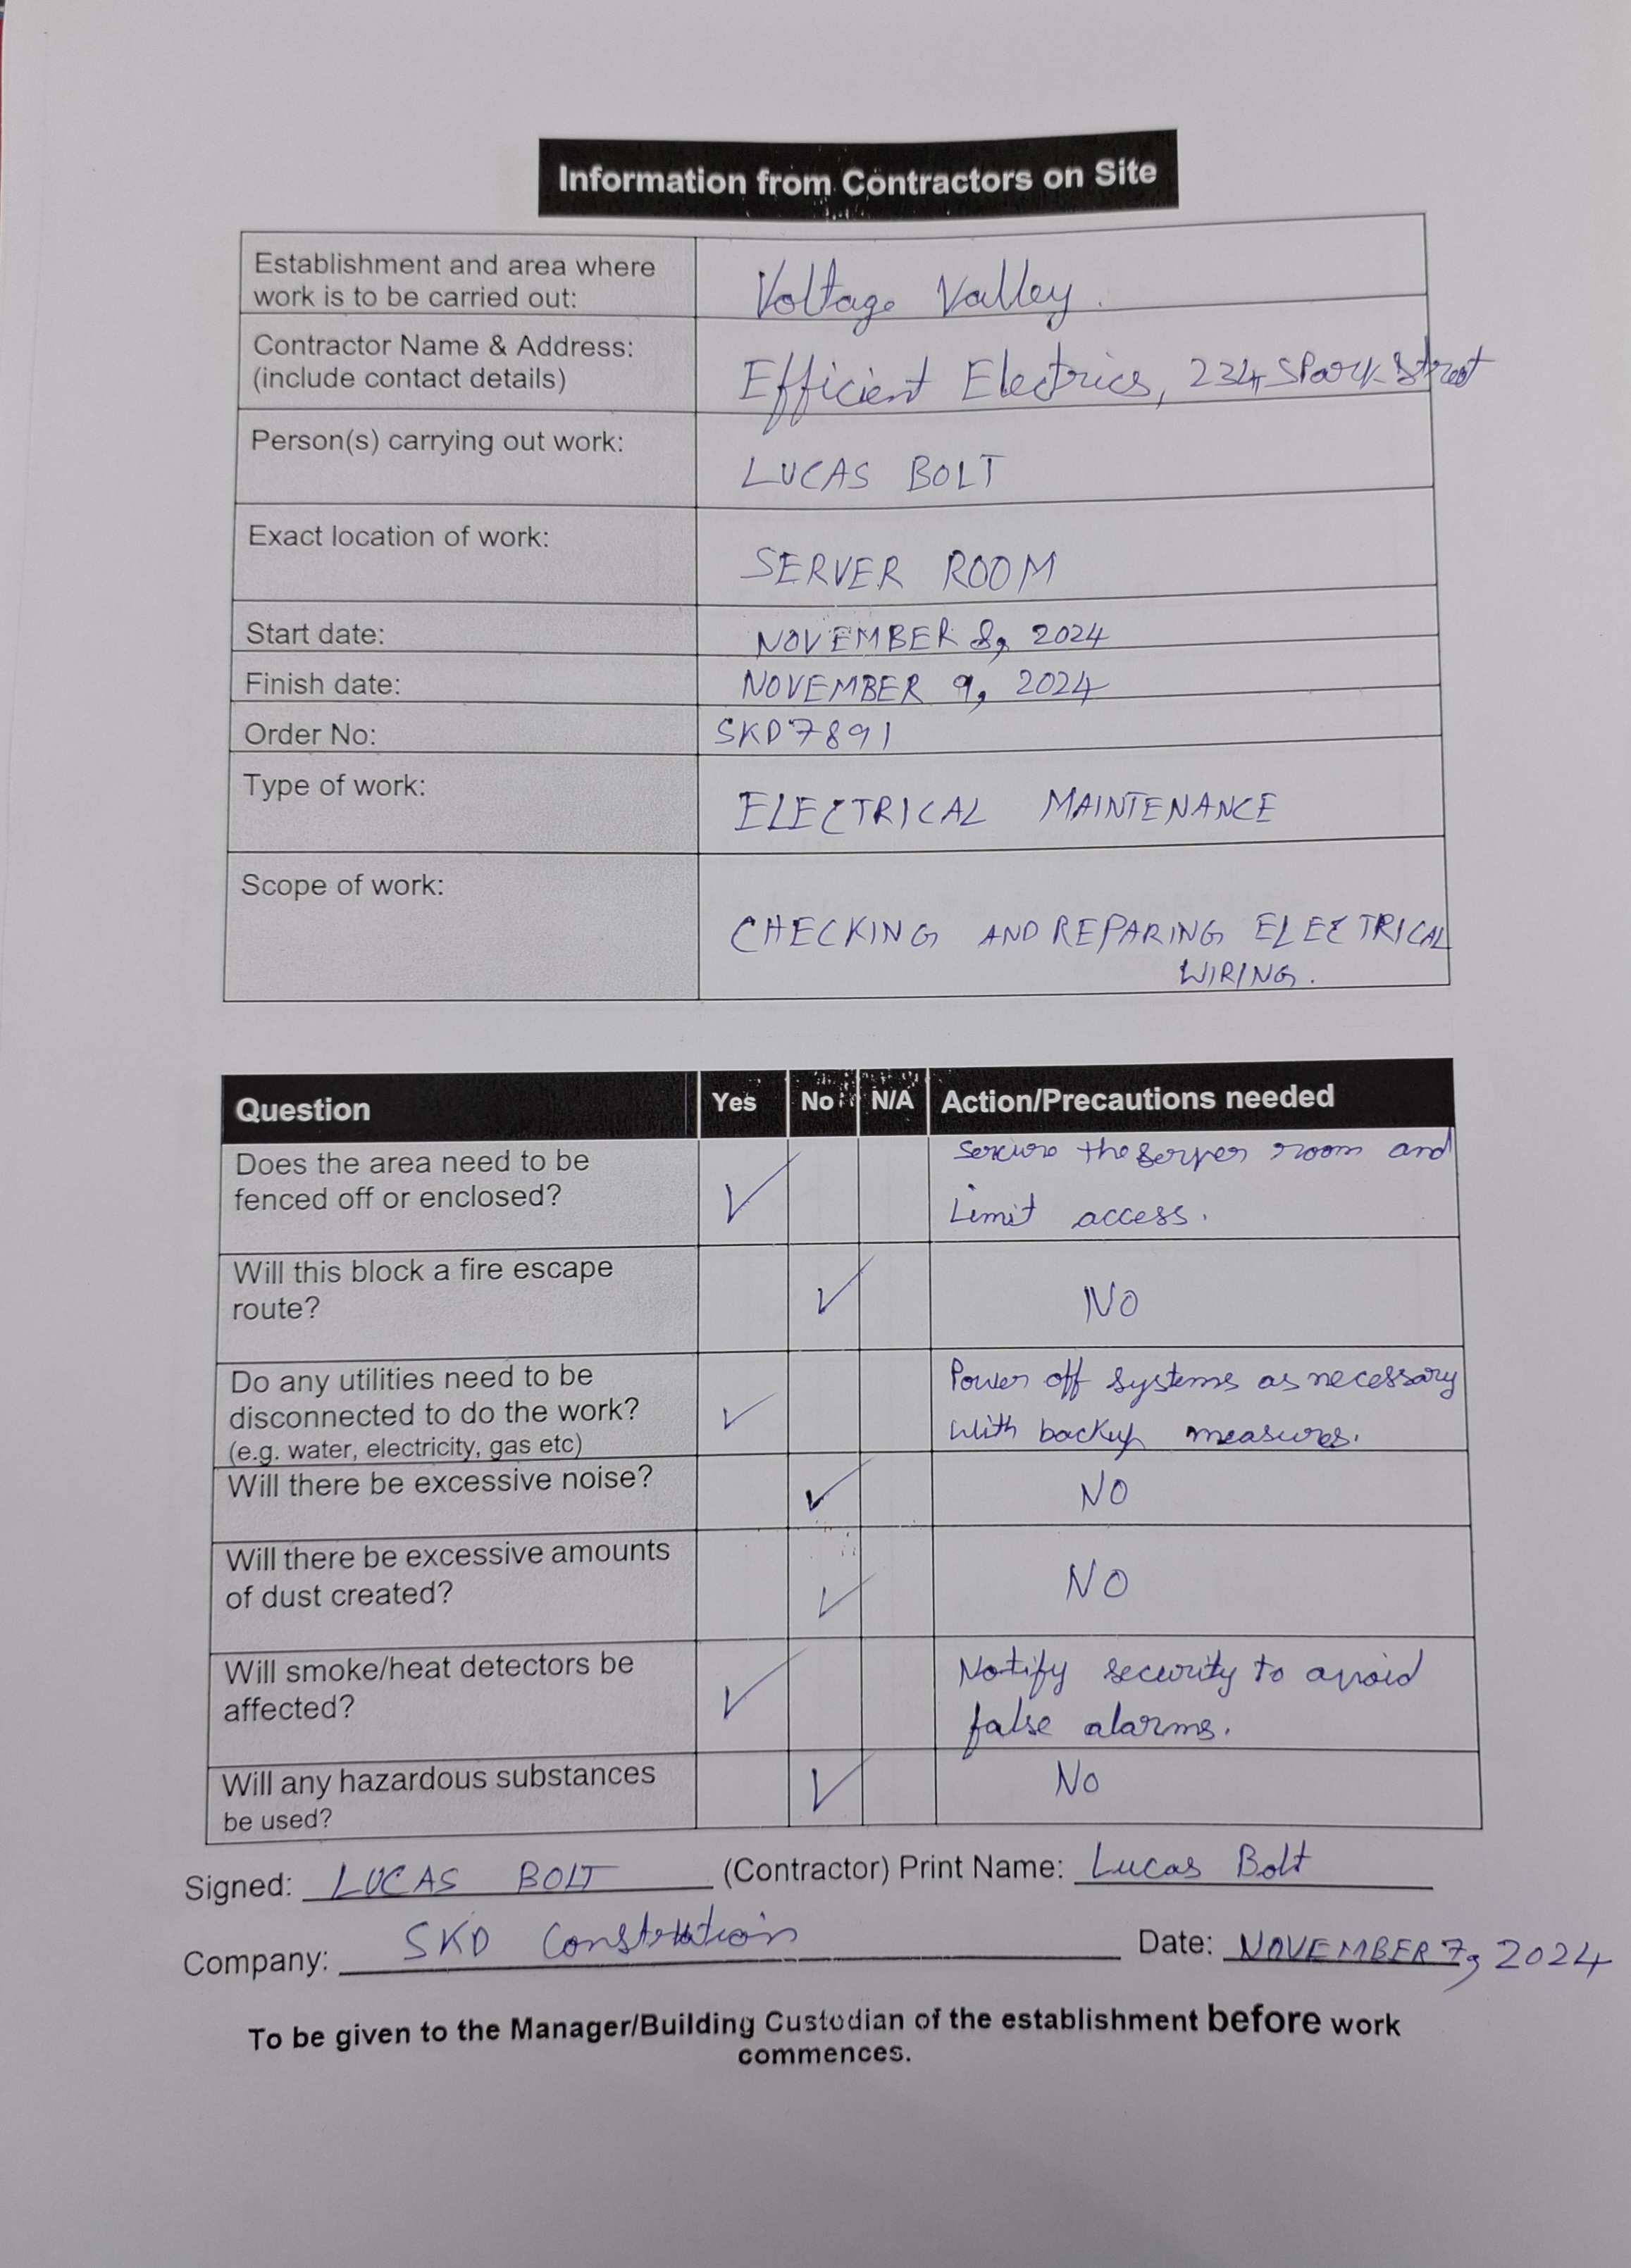 Information from Contractors on Site
Establishment and area where
work is to be carried out:
Voltage Valley.
Contractor Name & Address:
(include contact details)
Efficient Electrics, 234 SPark Street
Person(s) carrying out work:
LUCAS BOLT
Exact location of work:
SERVER ROOM
Start date:
NOVEMBER 8, 2024
Finish date:
NOVEMBER 9, 2024
Order No:
SKD7891
Type of work:
ELECTRICAL MAINTENANCE
Scope of work:
CHECKING AND REPARING ELECTRICAL
WIRING.
Question Yes No N/A Action/Precautions needed
Does the area need to be
fenced off or enclosed?
✓
the server room and
Limit access.
Will this block a fire escape
route?
✓
NO
Do any utilities need to be
disconnected to do the work?
(e.g. water, electricity, gas etc)
✓
Power off systems as necessary
With backup measures.
Will there be excessive noise?
✓
NO
Will there be excessive amounts
of dust created?
✓
NO
Will smoke/heat detectors be
affected?
✓
Notify security to avoid
false alarms.
Will any hazardous substances
be used?
✓
No
Signed: LUCAS BOLT (Contractor) Print Name: Lucas Bolt
Company: SKD Date: NOVEMBER 7, 2024
To be given to the Manager/Building Custodian of the establishment before work
commences.